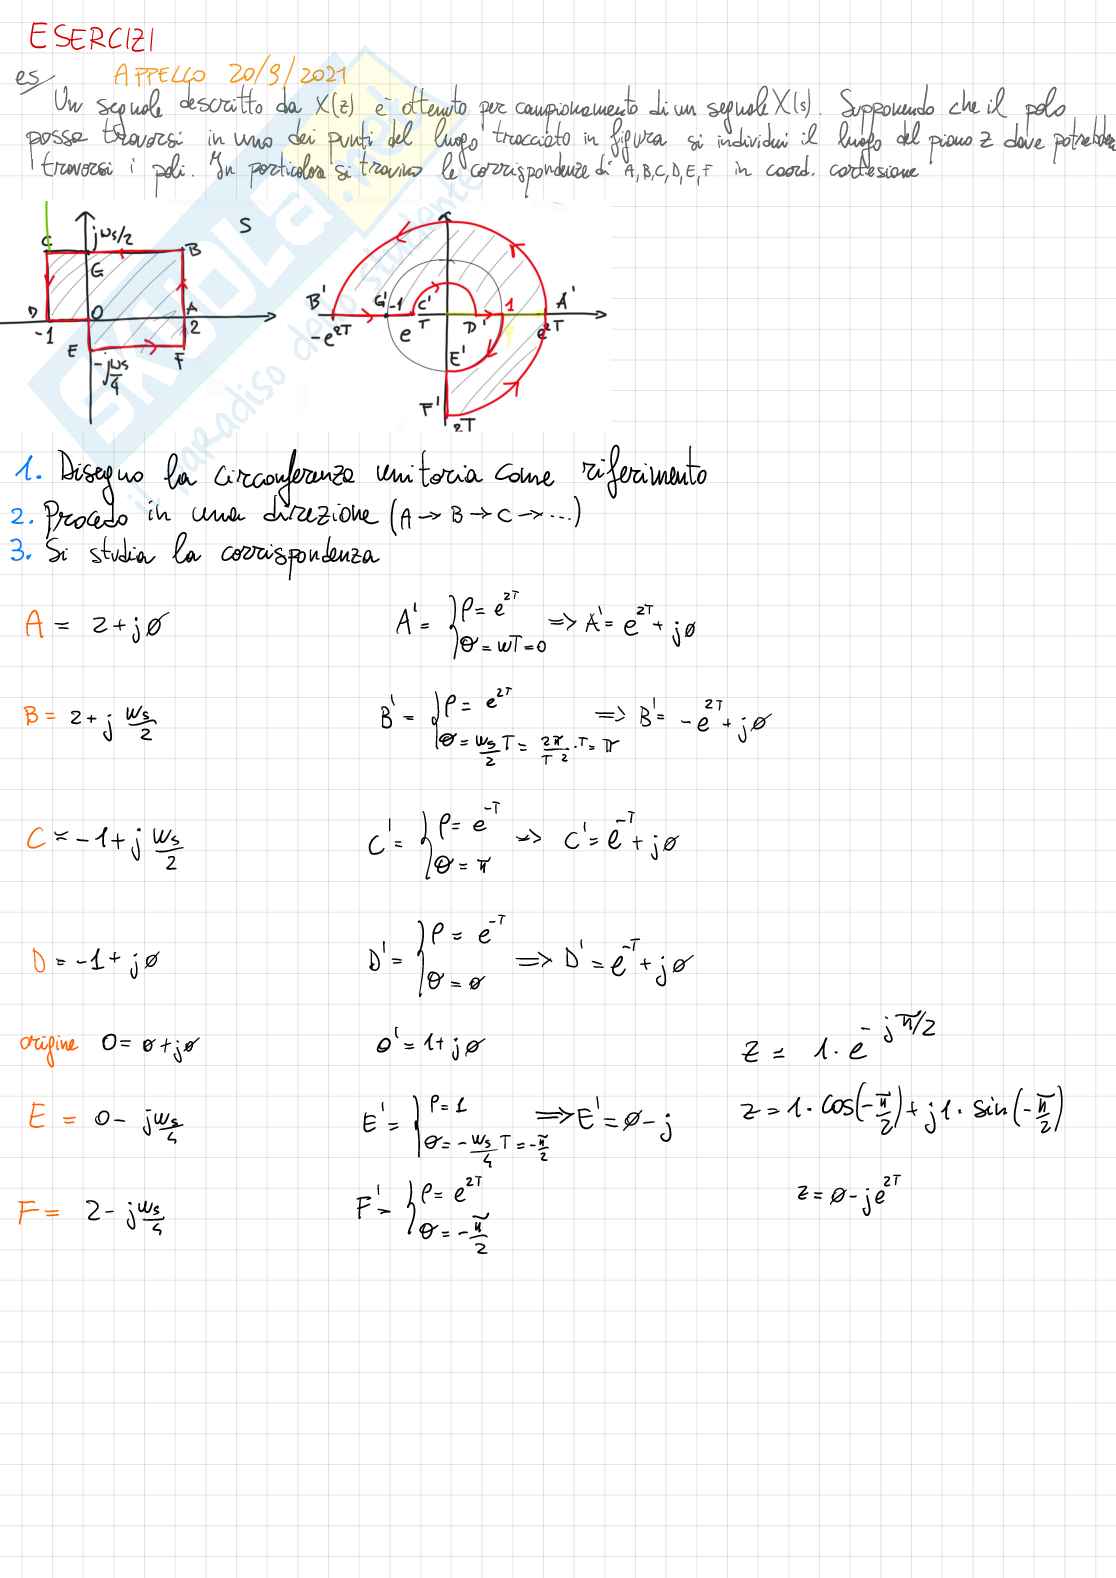 ESERCIZI
es APPELLO 20/9/2021
Un segnale descritto da X(z) è ottenuto per campionamento di un segnale X(s). Supponendo che il polo
possa trovarsi in uno dei punti del luogo tracciato in figura si individui il luogo del piano z dove potrebbero
trovarsi i poli. In particolare si trovino le corrispondenze di A, B, C, D, E, F in coord. cartesiane
C jωs/2 B S
G
D O A
-1 2
E F
-jωs/4
B' G' -1 C' D' 1 A'
-e^2T e^T e^2T
E'
F'
2T
SKUOLA.net
il paradiso dello studente
1. Disegno la circonferenza unitaria come riferimento
2. Procedo in una direzione (A → B → C → ...)
3. Si studia la corrispondenza
A = 2+j∅ A' = { ρ = e^2T θ = ωT = 0 => A' = e^2T + j∅
B = 2+j ωs/2 B' = { ρ = e^2T θ = ωs/2 T = 2π/T2 · T = π => B' = -e^2T + j∅
C = -1+j ωs/2 C' = { ρ = e^-T θ = π => C' = e^-T + j∅
D = -1+j∅ D' = { ρ = e^-T θ = ∅ => D' = e^-T + j∅
origine O = ∅+j∅ O' = 1+j∅ z = 1 · e^-jπ/2
E = 0 - jωs/4 E' = { ρ = 1 θ = -ωs/4 T = -π/2 => E' = ∅ - j z = 1 · cos(-π/2) + j1 · sin(-π/2)
F = 2 - jωs/4 F' = { ρ = e^2T θ = -π/2 z = ∅ - je^2T